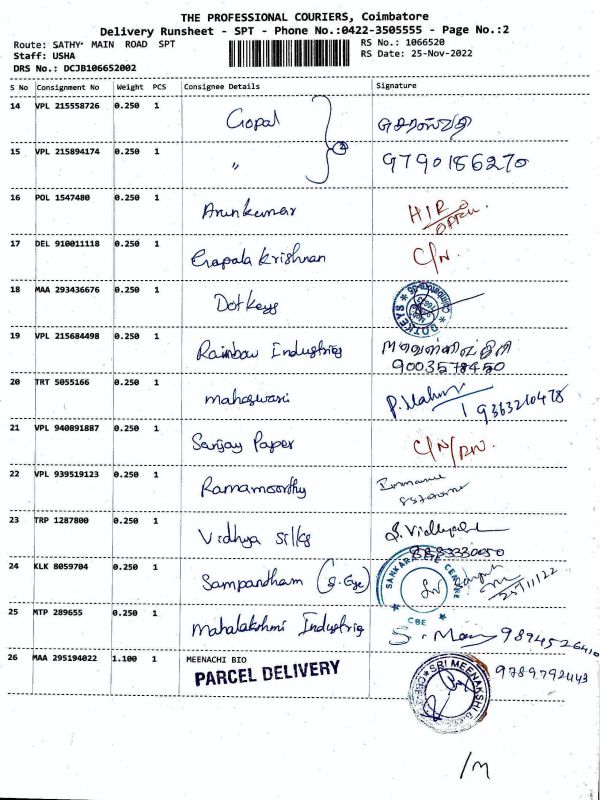 THE PROFESSIONAL COURIERS, Coimbatore
Delivery Runsheet - SPT - Phone No.:0422-3505555 - Page No.:2
Route: SATHY MAIN ROAD SPT
RS No.: 1066520
Staff: USHA
RS Date: 25-Nov-2022
DRS No.: DCJB106652002
S No Consignment No Weight PCS Consignee Details Signature
14 VPL 215558726 0.250 1 Gopal
2
15 VPL 215894174 0.250 1 " 9790186270
16 POL 1547480 0.250 1 Arunkumar
17 DEL 910011118 0.250 1 Gopala Krishnan C/N.
18 MAA 293436676 0.250 1 Dotkeys DOTKEYS
19 VPL 215684498 0.250 1 Rainbow Industries
9003578450
20 TRT 5055166 0.250 1 maheswari 9363210478
21 VPL 940891887 0.250 1 Sanjay Paper C/N/DN.
22 VPL 939519123 0.250 1 Ramamoorthy
23 TRP 1287800 0.250 1 Vidhya silks S. Vidhya
24 KLK 8059704 0.250 1 Sampantham (S.Eye) SANKARA EYE CENTRE CBE 25/11/22
25 MTP 289655 0.250 1 Mahalakshmi Industries 9894526410
26 MAA 295194022 1.100 1 MEENACHI BIO 9789792443
PARCEL DELIVERY
SRI MEENAKSHI
/M